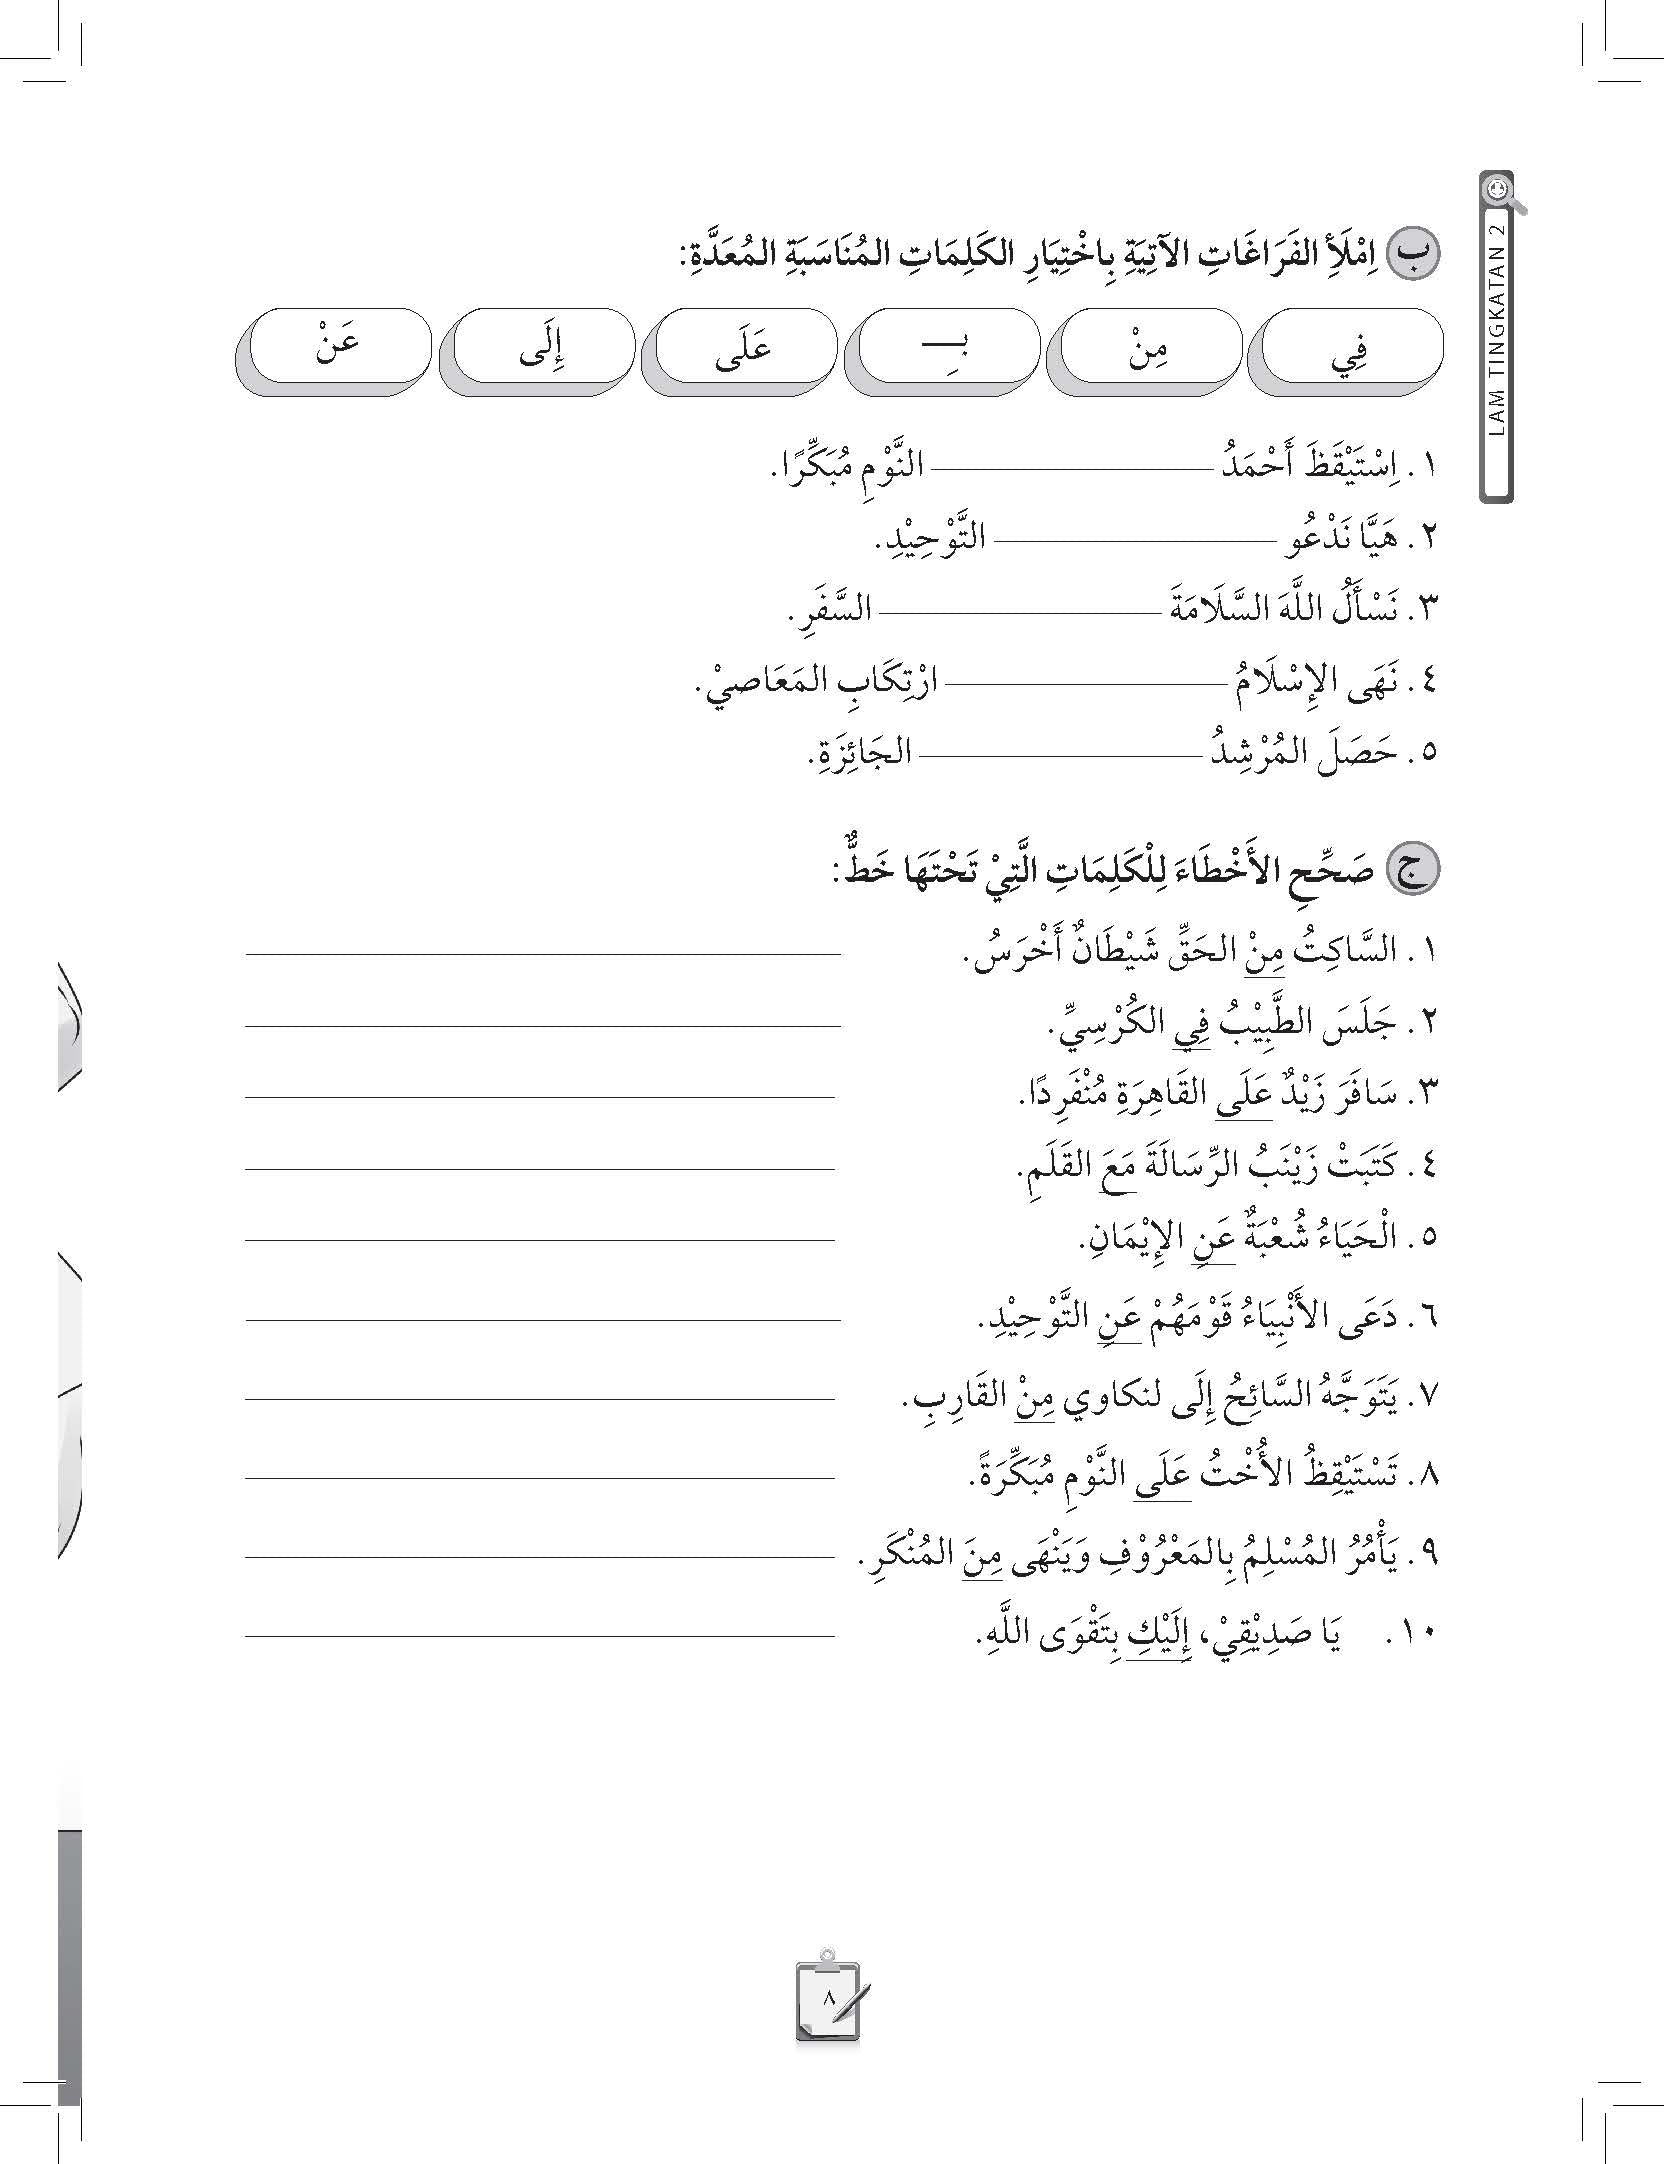 LAM TINGKATAN 2
ب اِمْلَأِ الفَرَاغَاتِ الآتِيَةِ بِاخْتِيَارِ الكَلِمَاتِ المُنَاسَبَةِ المُعَدَّةِ:
فِي مِنْ بِـ عَلَى إِلَى عَنْ
١. اِسْتَيْقَظَ أَحْمَدُ ــــــــ النَّوْمِ مُبَكِّرًا.
٢. هَيَّا نَدْعُو ــــــــ التَّوْحِيْدِ.
٣. نَسْأَلُ اللَّهَ السَّلَامَةَ ــــــــ السَّفَرِ.
٤. نَهَى الإِسْلَامُ ــــــــ ارْتِكَابِ المَعَاصيْ.
٥. حَصَلَ المُرْشِدُ ــــــــ الجَائِزَةِ.
ج صَحِّحِ الأَخْطَاءَ لِلْكَلِمَاتِ الَّتِيْ تَحْتَهَا خَطٌّ:
١. السَّاكِتُ مِنْ الحَقِّ شَيْطَانٌ أَخْرَسُ.
٢. جَلَسَ الطَّبِيْبُ فِي الكُرْسِيِّ.
٣. سَافَرَ زَيْدٌ عَلَى القَاهِرَةِ مُنْفَرِدًا.
٤. كَتَبَتْ زَيْنَبُ الرِّسَالَةَ مَعَ القَلَمِ.
٥. الْحَيَاءُ شُعْبَةٌ عَنِ الإِيْمَانِ.
٦. دَعَى الأَنْبِيَاءُ قَوْمَهُمْ عَنِ التَّوْحِيْدِ.
٧. يَتَوَجَّهُ السَّائِحُ إِلَى لنكاوي مِنْ القَارِبِ.
٨. تَسْتَيْقِظُ الأُخْتُ عَلَى النَّوْمِ مُبَكِّرَةً.
٩. يَأْمُرُ المُسْلِمُ بِالمَعْرُوْفِ وَيَنْهَى مِنَ المُنْكَرِ.
١٠. يَا صَدِيْقِيْ، إِلَيْكِ بِتَقْوَى اللَّهِ.
٨